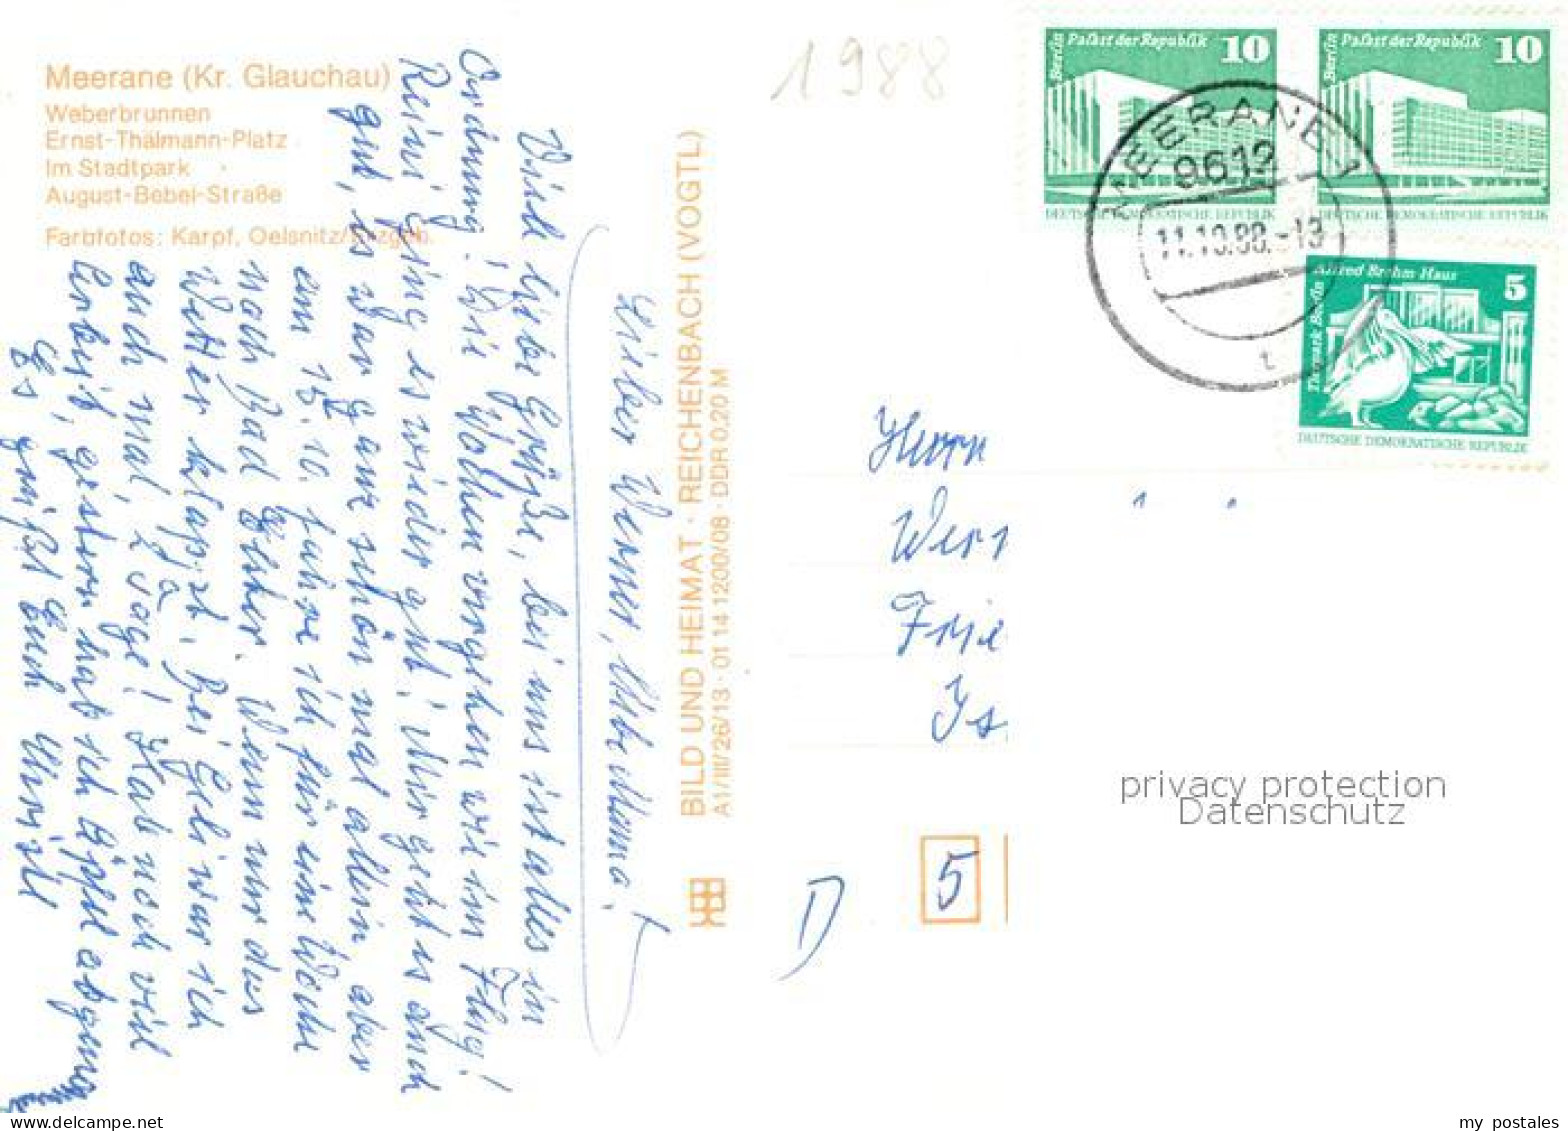 Meerane (Kr. Glauchau)
Weberbrunnen
Ernst-Thälmann-Platz
Im Stadtpark
August-Bebel-Straße
Farbfotos: Karpf, Oelsnitz/Erzgeb.
Lieber Werner, liebe Mama!
Viele liebe Grüße, bei uns ist alles in
Ordnung! Die Wochen vergehen wie im Flug!
Reini ging es wieder gut! Mir geht es auch
gut, es war ganz schön mal allein, aber
am 15.10. fahre ich für eine Woche
nach Bad Elster. Wenn nur das
Wetter klappt, bei Geli war ich
auch mal, 2 Tage! Hab noch viel
Arbeit, gestern hab ich Äpfel
Es grüßt Euch
BILD UND HEIMAT · REICHENBACH (VOGTL)
A1/III/26/13 · 01 14 1200/08 · DDR 0,20 M
1988
Berlin Palast der Republik 10
DEUTSCHE DEMOKRATISCHE REPUBLIK
Berlin Palast der Republik 10
DEUTSCHE DEMOKRATISCHE REPUBLIK
MEERANE 1
9612
11.10.88.-13
t
Tierpark Berlin Alfred Brehm Haus 5
DEUTSCHE DEMOKRATISCHE REPUBLIK
Herrn
Wer
Frie
Is
D
5
privacy protection
Datenschutz
my postales